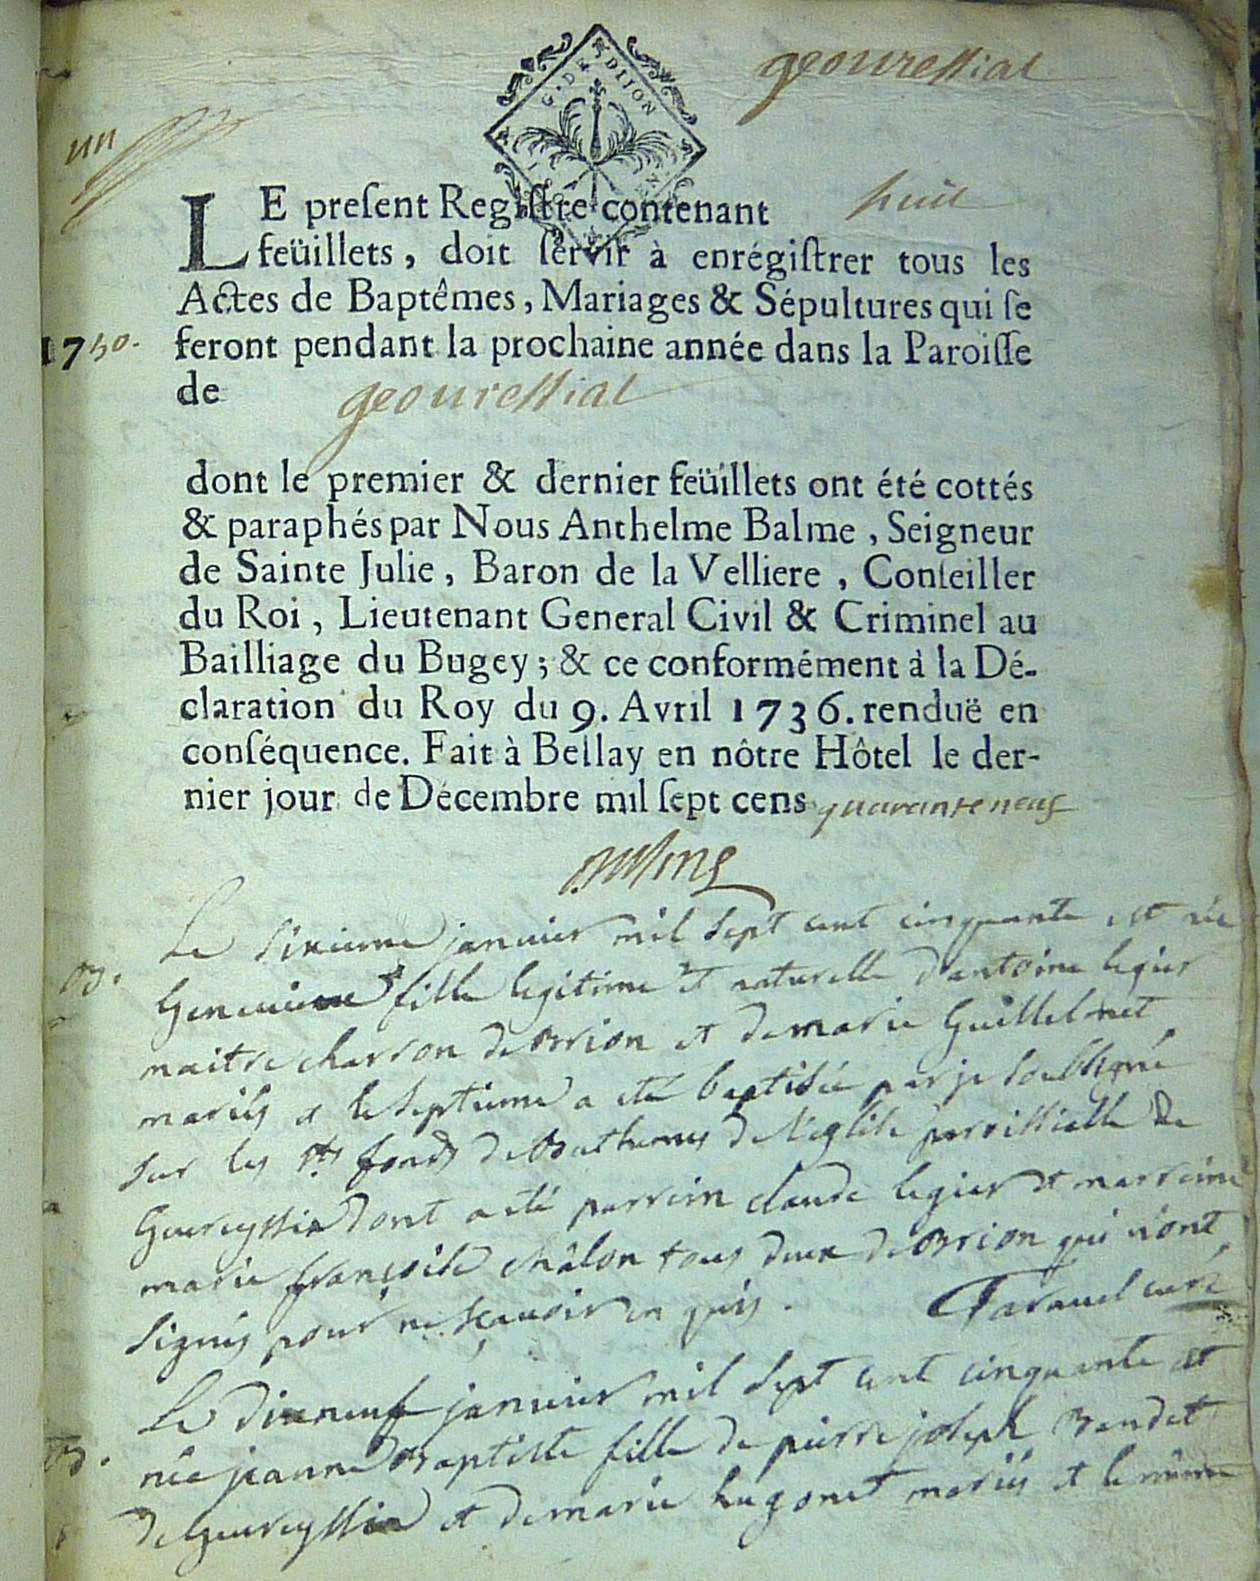 geouressiat
G. DE DIJON
un
LE preſent Regiſtre contenant huit
feüillets, doit ſervir à enrégiſtrer tous les
Actes de Baptêmes, Mariages & Sépultures qui ſe
1750. feront pendant la prochaine année dans la Paroiſſe
de geouressiat
dont le premier & dernier feüillets ont été cottés
& paraphés par Nous Anthelme Balme, Seigneur
de Sainte Julie, Baron de la Velliere, Conſeiller
du Roi, Lieutenant General Civil & Criminel au
Bailliage du Bugey; & ce conformément à la Dé-
claration du Roy du 9. Avril 1736. renduë en
conſéquence. Fait à Bellay en nôtre Hôtel le der-
nier jour de Décembre mil ſept cens quarante neuf
Le sixieme janvier mil sept cent cinquante est née
B. Genevieve fille legitime et naturelle d'antoine legier
maitre charron de Brion et de marie Guillelmet
mariés et le septieme a été baptisée par je soussigné
sur les sts fonds de Bathemes de l'eglise parroissielle de
Geureyssia dont a été parrein claude legier et marreine
marie françoise châlon tous deux de Brion qui n'ont
signés pour ne sçavoir en quis. Taravel curé
Le dixneuf janvier mil sept cent cinquante est
B. née jeanne Baptiste fille de pierre joseph Bendet
de Geureyssia et de marie hugonet mariés et le même